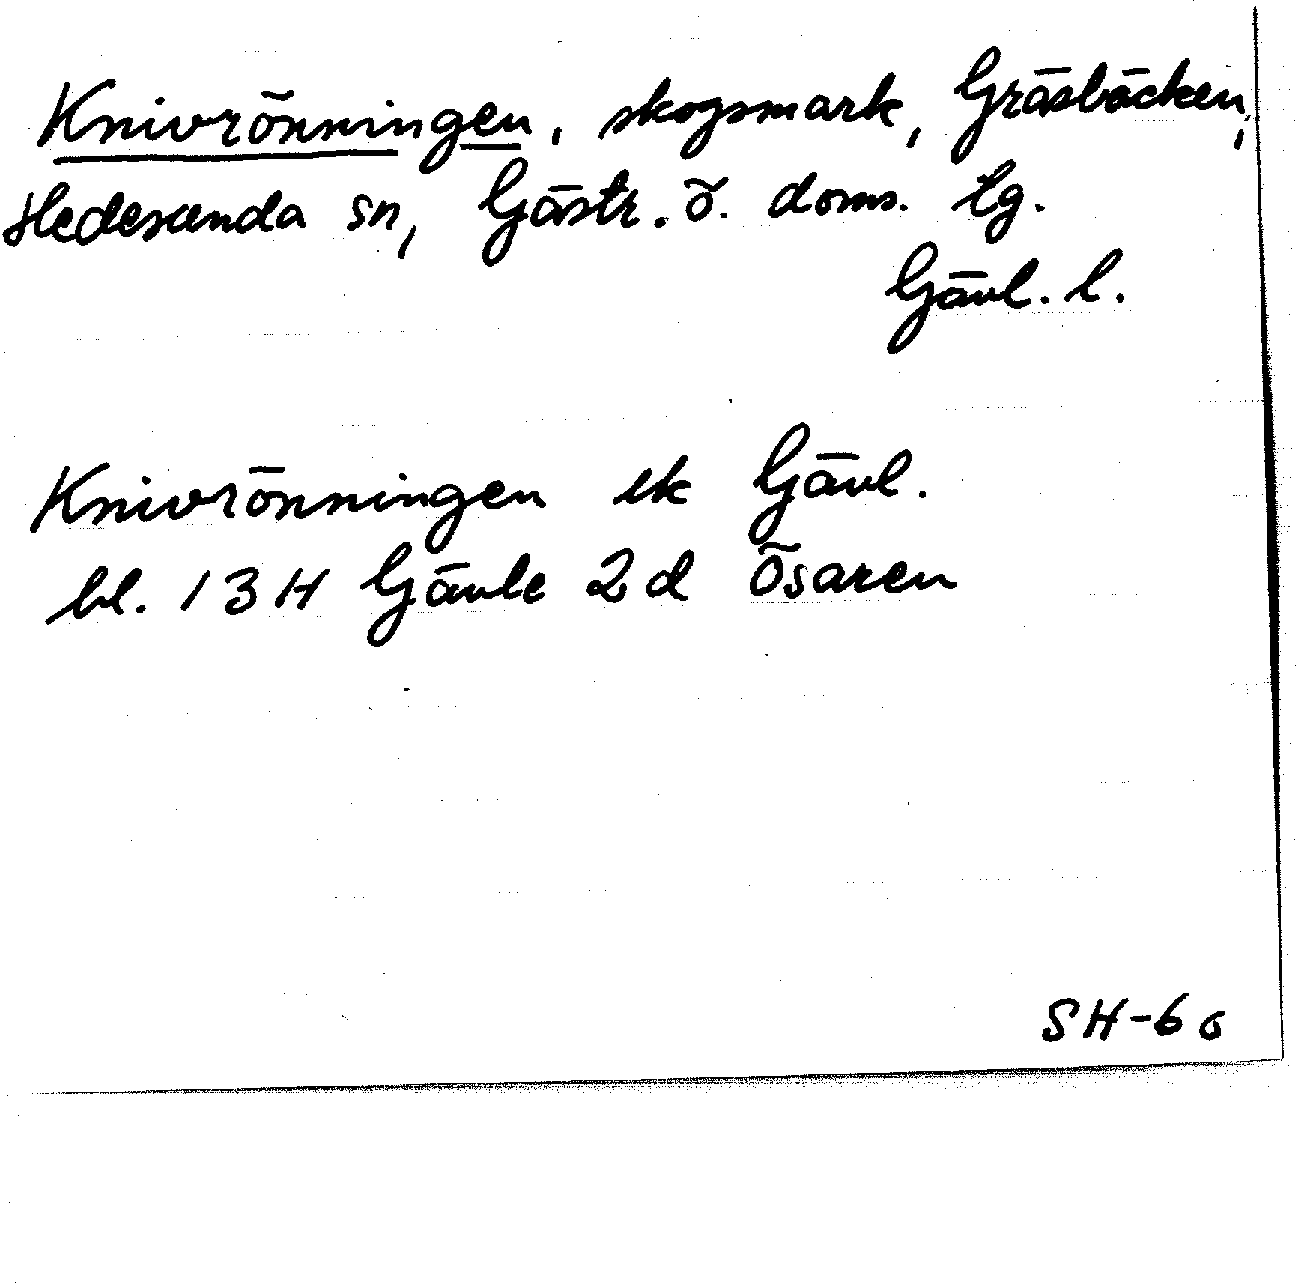 Knivrönningen, skogsmark, Gräsbäcken,
Hedesunda sn, Gästr. ö. doms. tg.
Gävl. l.
Knivrönningen ek Gävl.
bl. 13H Gävle 2d Ösaren
SH-66